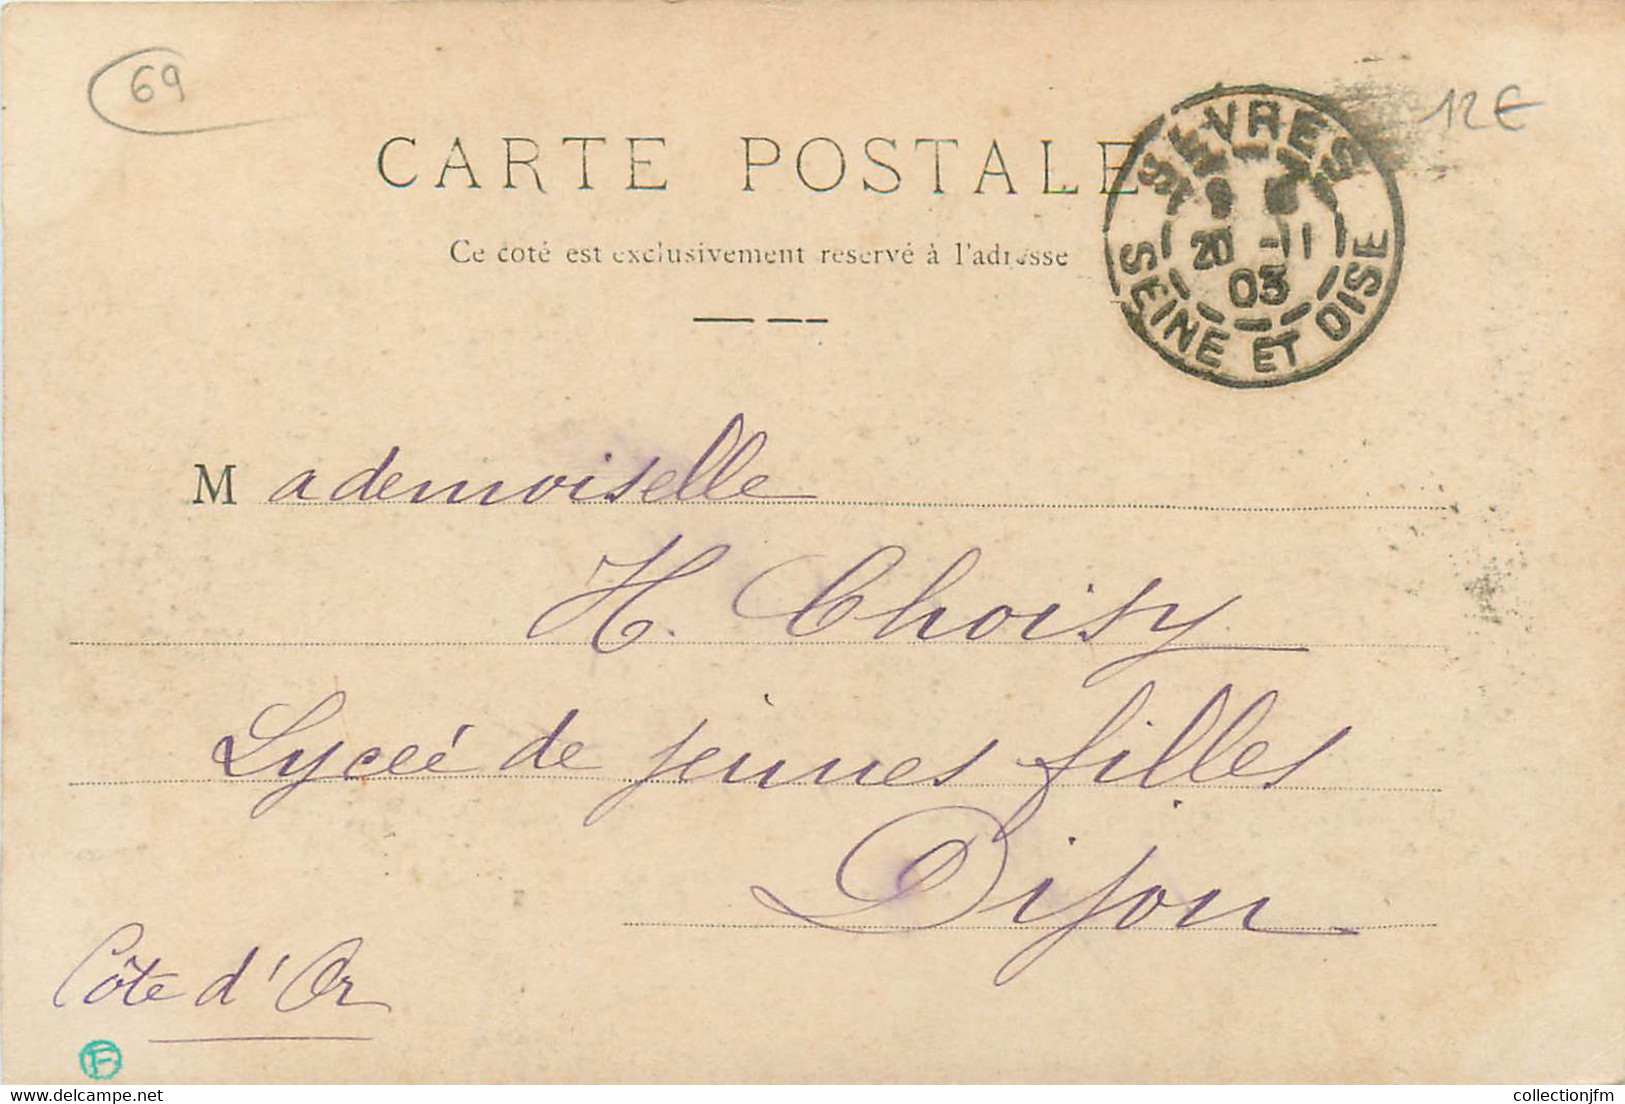 69
12€
CARTE POSTALE
Ce coté est exclusivement reservé à l'adresse
SÈVRES
20 -11
03
SEINE ET OISE
Mademoiselle
H. Choisy
Lyceé de jeunes filles
Dijon
Côte d'Or
F
www.delcampe.net
collectionjfm